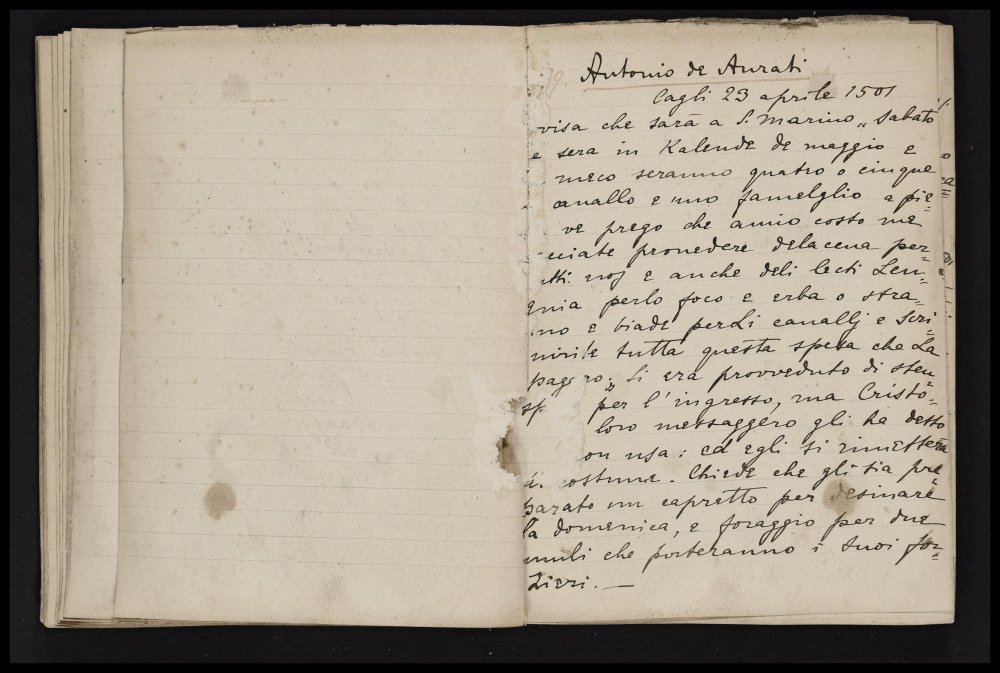 Antonio de Aurati
Cagli 23 aprile 1501
visa che sarà a S. Marino „ Sabato
e sera in Kalende de maggio e
meco seranno quatro o cinque
cavallo e uno famelglio a pie=
ve prego che amio costo me
ciate provedere delacena per
tti noj e anche deli lecti Len=
gnia perlo foco e erba o stra=
mo e biade perLi cavallj e scri=
virite tutta questa spesa che La
pagero. „ Si era provveduto di sten=
per l'ingresso, ma Cristo=
loro messaggero gli ha detto
on usa: ed egli si rimetterà
costume. Chiede che gli sia pre=
parato un capretto per desinare
la domenica, e foraggio per due
muli che porteranno i suoi for=
zieri. —